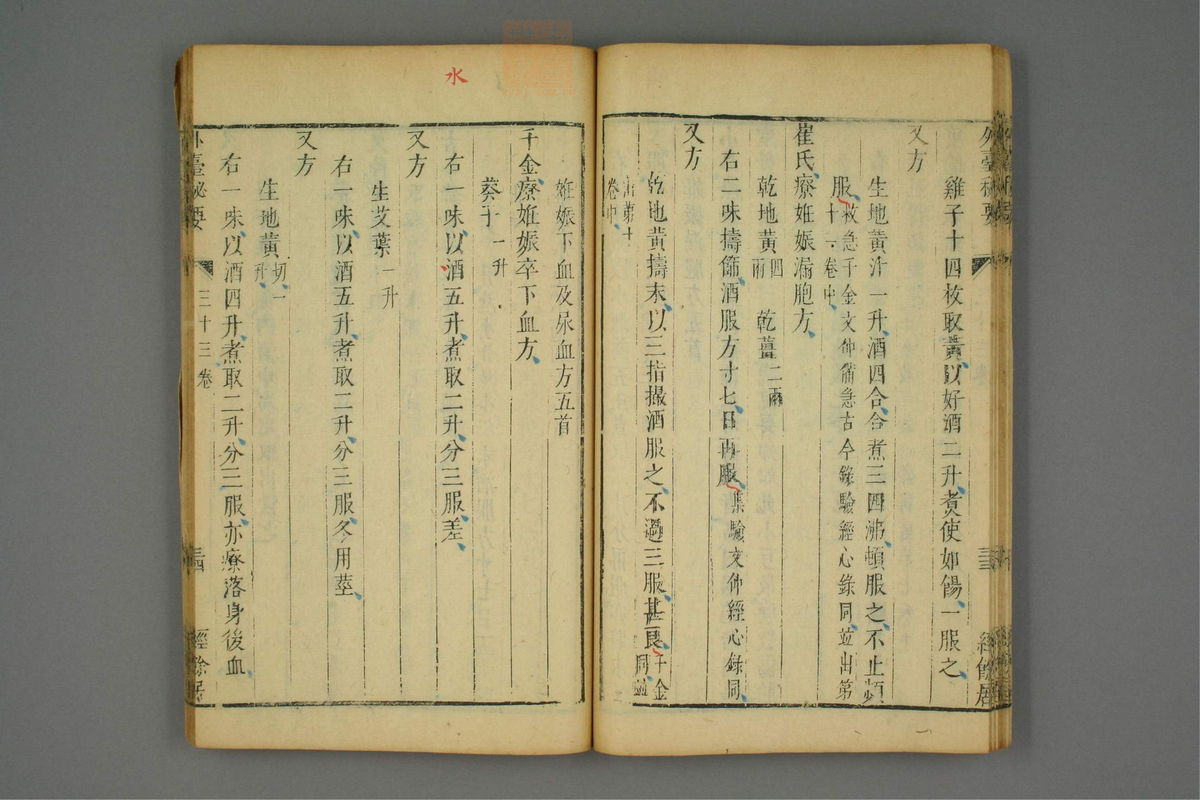 雞子十四枚取黃以好酒二升煮使如餳一服之
又方
生地黃汁一升酒四合合煮三四沸頓服之不止頻
服救急千金文仲備急古今錄驗經心錄同並出第
十一卷中
崔氏療姙娠漏胞方
乾地黃四兩 乾薑二兩
右二味擣篩酒服方寸七日再服集驗文仲經心錄同
又方
乾地黃擣末以三指撮酒服之不過三服甚良千金同並
出第十卷中
姙娠下血及尿血方五首
千金療姙娠卒下血方
葵子一升
右一味以酒五升煮取二升分三服差
又方
生艾葉一升
右一味以酒五升煮取二升分三服冬用莖
又方
生地黃切一升
右一味以酒四升煮取二升分三服亦療落身後血
外臺秘要 三十三卷 經餘居
外臺秘要 經餘居
水